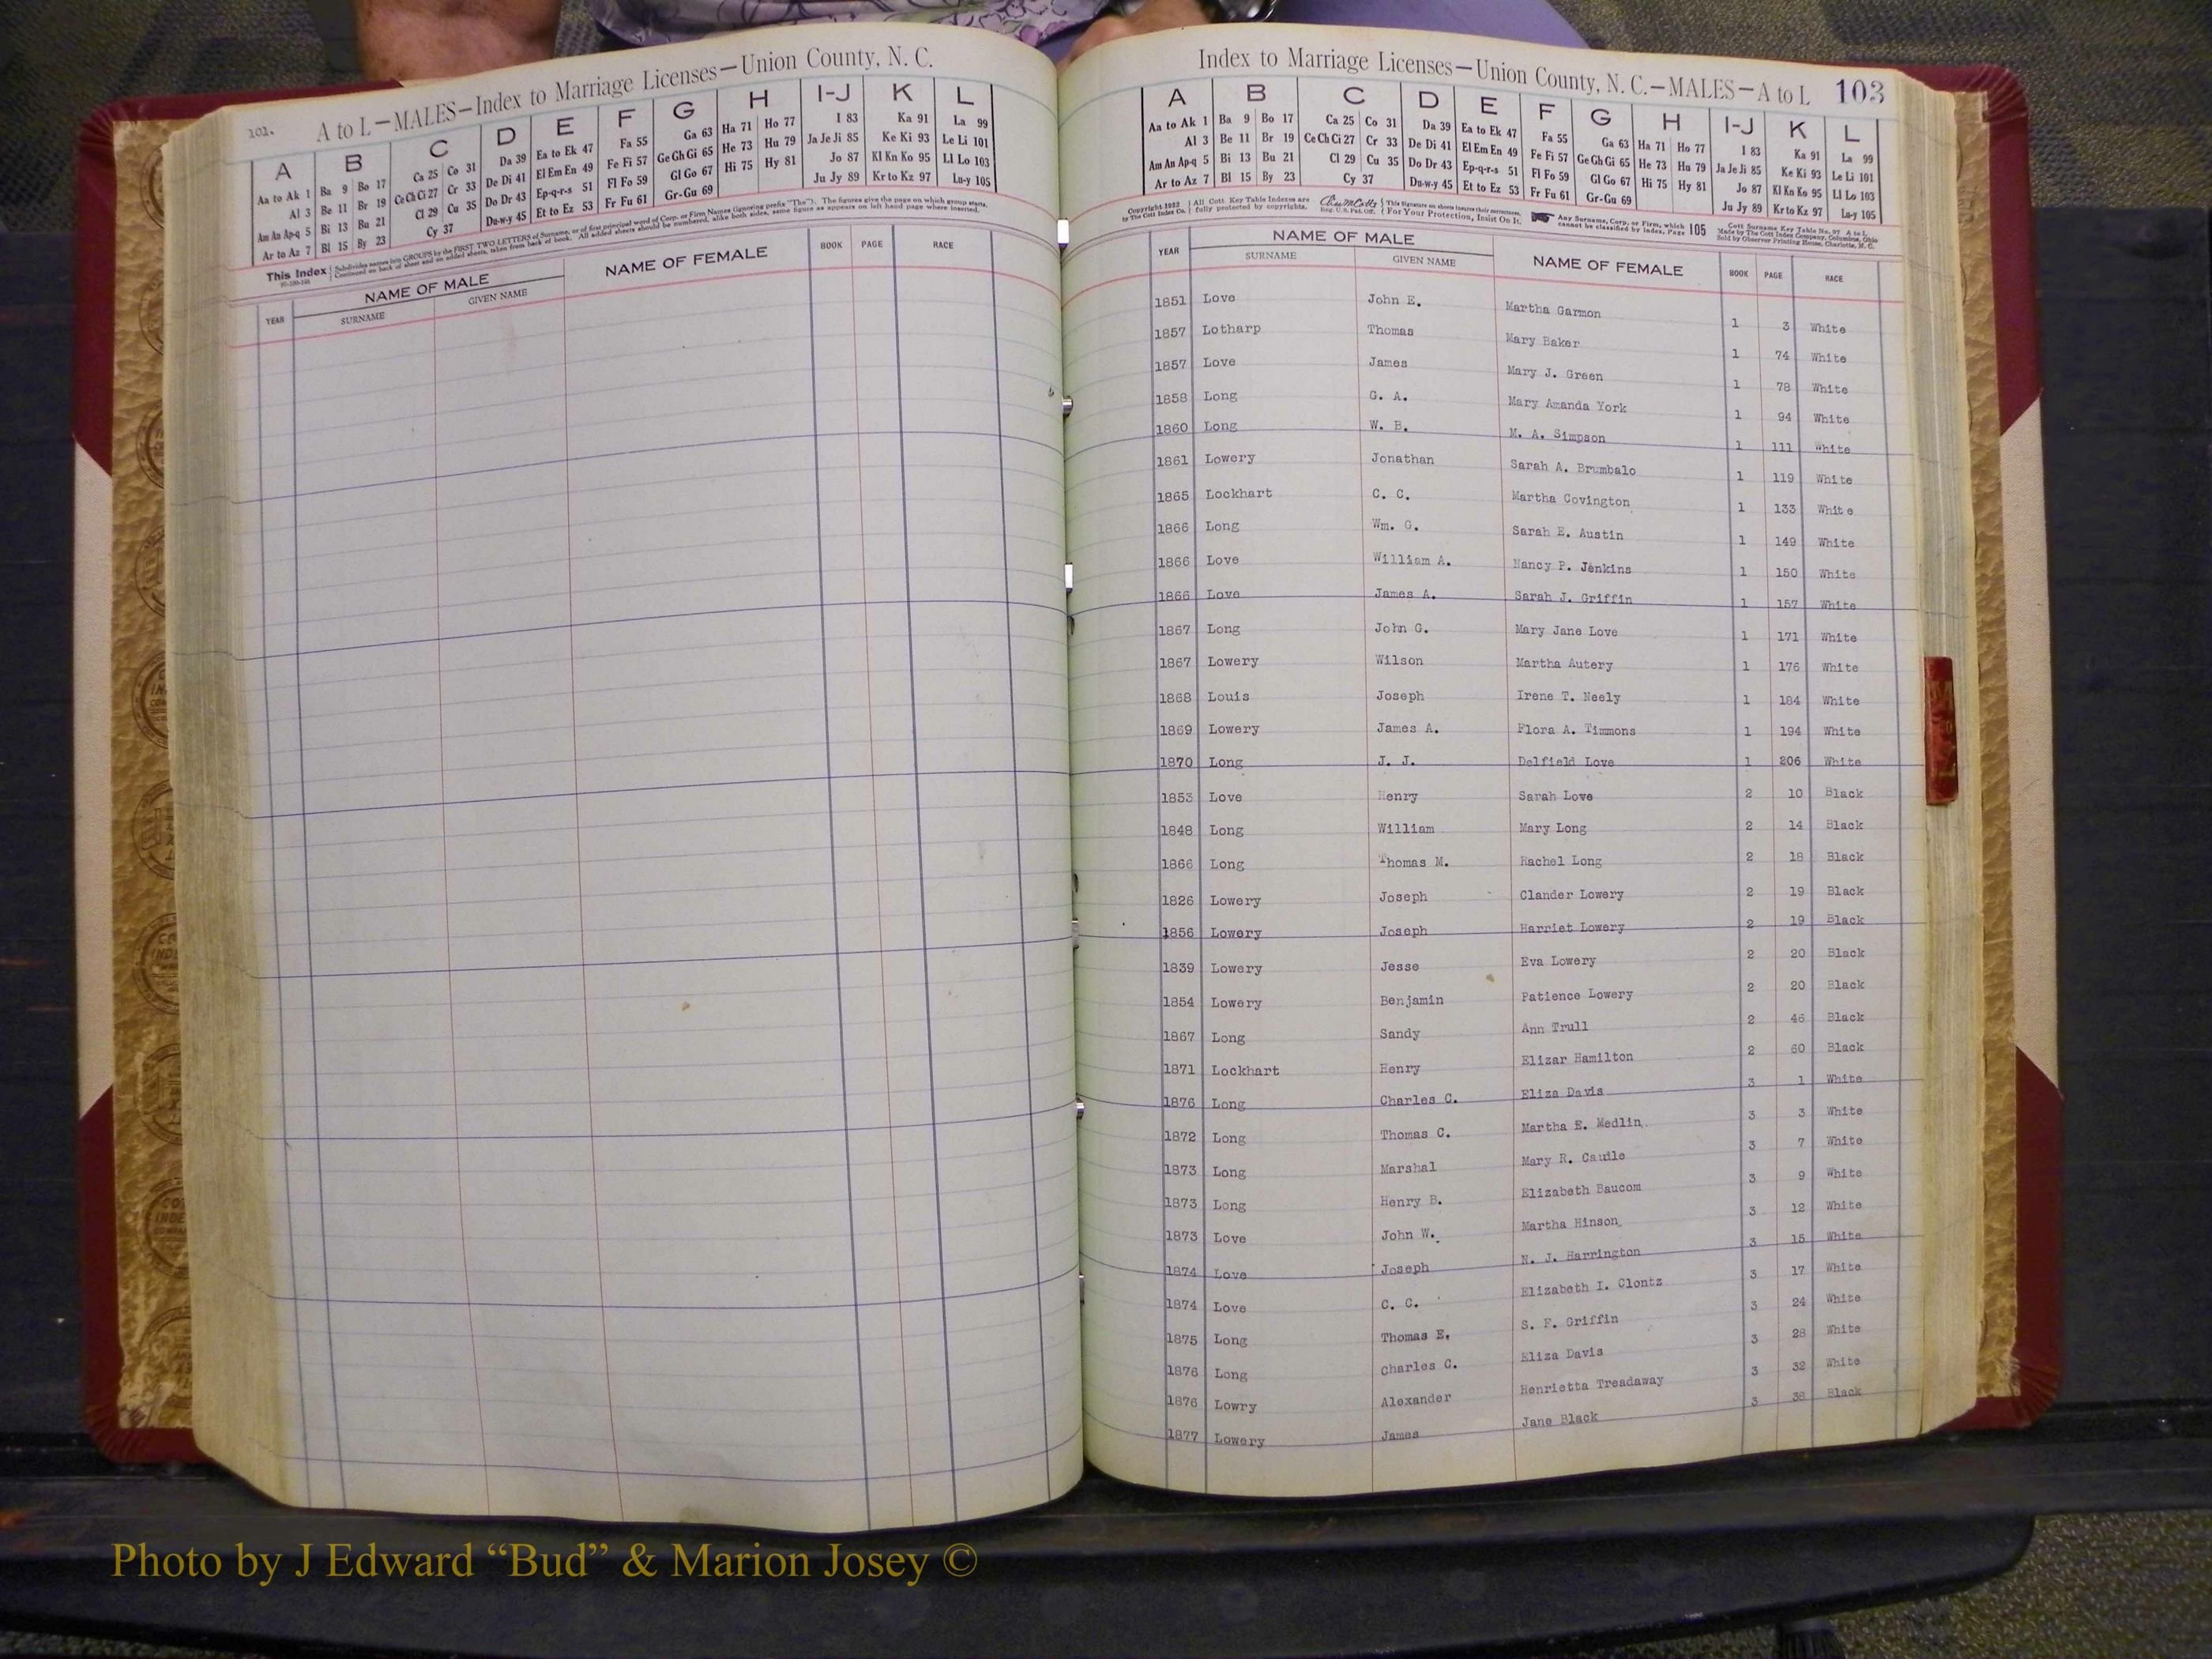 101.
A to L—MALES—Index to Marriage Licenses—Union County, N. C.
A B C D E F G H I-J K L
Aa to Ak 1 Ba 9 Bo 17 Ca 25 Co 31 Da 39 Ea to Ek 47 Fa 55 Ga 63 Ha 71 Ho 77 I 83 Ka 91 La 99
Al 3 Be 11 Br 19 Ce Ch Ci 27 Cr 33 De Di 41 El Em En 49 Fe Fi 57 Ge Gh Gi 65 He 73 Hu 79 Ja Je Ji 85 Ke Ki 93 Le Li 101
Am An Ap-q 5 Bi 13 Bu 21 Cl 29 Cu 35 Do Dr 43 Ep-q-r-s 51 Fl Fo 59 Gl Go 67 Hi 75 Hy 81 Jo 87 Kl Kn Ko 95 Ll Lo 103
Ar to Az 7 Bl 15 By 23 Cy 37 Du-w-y 45 Et to Ez 53 Fr Fu 61 Gr-Gu 69 Ju Jy 89 Kr to Kz 97 Lu-y 105
This Index Subdivides names into GROUPS by the FIRST TWO LETTERS of Surname, or of first principal word of Corp. or Firm Names (ignoring prefix "The"). The figures give the page on which group starts.
Continued on back of sheet and on added sheets, taken from back of book. All added sheets should be numbered, alike both sides, same figure as appears on left hand page where inserted.
YEAR NAME OF MALE NAME OF FEMALE BOOK PAGE RACE
SURNAME GIVEN NAME
Index to Marriage Licenses—Union County, N. C.—MALES—A to L 103
A B C D E F G H I-J K L
Aa to Ak 1 Ba 9 Bo 17 Ca 25 Co 31 Da 39 Ea to Ek 47 Fa 55 Ga 63 Ha 71 Ho 77 I 83 Ka 91 La 99
Al 3 Be 11 Br 19 Ce Ch Ci 27 Cr 33 De Di 41 El Em En 49 Fe Fi 57 Ge Gh Gi 65 He 73 Hu 79 Ja Je Ji 85 Ke Ki 93 Le Li 101
Am An Ap-q 5 Bi 13 Bu 21 Cl 29 Cu 35 Do Dr 43 Ep-q-r-s 51 Fl Fo 59 Gl Go 67 Hi 75 Hy 81 Jo 87 Kl Kn Ko 95 Ll Lo 103
Ar to Az 7 Bl 15 By 23 Cy 37 Du-w-y 45 Et to Ez 53 Fr Fu 61 Gr-Gu 69 Ju Jy 89 Kr to Kz 97 Lu-y 105
Copyright 1923 All Cott Key Table Indexes are This signature on sheets insures their correctness, Any Surname, Corp. or Firm, which Cott Surname Key Table No. 97 A to L
by The Cott Index Co. fully protected by copyrights. Reg. U. S. Pat. Off. For Your Protection, Insist On It. cannot be classified by Index, Page 105 Made by The Cott Index Company, Columbus, Ohio
Sold by Observer Printing House, Charlotte, N. C.
YEAR NAME OF MALE NAME OF FEMALE BOOK PAGE RACE
SURNAME GIVEN NAME
1851 Love John E. Martha Garmon 1 3 White
1857 Lotharp Thomas Mary Baker 1 74 White
1857 Love James Mary J. Green 1 78 White
1858 Long G. A. Mary Amanda York 1 94 White
1860 Long W. B. M. A. Simpson 1 111 White
1861 Lowery Jonathan Sarah A. Brumbalo 1 119 White
1865 Lockhart C. C. Martha Covington 1 133 White
1866 Long Wm. G. Sarah E. Austin 1 149 White
1866 Love William A. Nancy P. Jenkins 1 150 White
1866 Love James A. Sarah J. Griffin 1 157 White
1867 Long John G. Mary Jane Love 1 171 White
1867 Lowery Wilson Martha Autery 1 176 White
1868 Louis Joseph Irene T. Neely 1 184 White
1869 Lowery James A. Flora A. Timmons 1 194 White
1870 Long J. J. Delfield Love 1 206 White
1853 Love Henry Sarah Love 2 10 Black
1848 Long William Mary Long 2 14 Black
1866 Long Thomas M. Rachel Long 2 18 Black
1826 Lowery Joseph Clander Lowery 2 19 Black
1856 Lowery Joseph Harriet Lowery 2 19 Black
1839 Lowery Jesse Eva Lowery 2 20 Black
1854 Lowery Benjamin Patience Lowery 2 20 Black
1867 Long Sandy Ann Trull 2 46 Black
1871 Lockhart Henry Elizar Hamilton 2 60 Black
1876 Long Charles C. Eliza Davis 3 1 White
1872 Long Thomas C. Martha E. Medlin 3 3 White
1873 Long Marshal Mary R. Caudle 3 7 White
1873 Long Henry B. Elizabeth Baucom 3 9 White
1873 Love John W. Martha Hinson 3 12 White
1874 Love Joseph N. J. Harrington 3 15 White
1874 Love C. C. Elizabeth I. Clontz 3 17 White
1875 Long Thomas E. S. F. Griffin 3 24 White
1876 Long Charles C. Eliza Davis 3 28 White
1876 Lowry Alexander Henrietta Treadaway 3 32 White
1877 Lowery James Jane Black 3 38 Black
Photo by J Edward “Bud” & Marion Josey ©